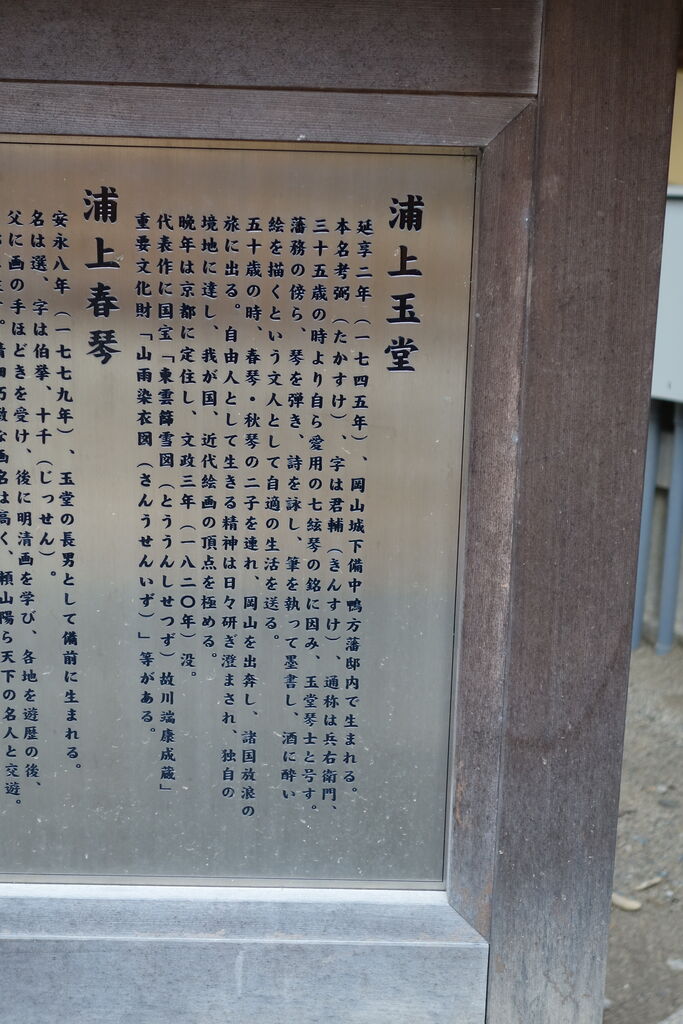 浦上玉堂
延享二年（一七四五年）、岡山城下備中鴨方藩邸内で生まれる。
本名考弼（たかすけ）、字は君輔（きんすけ）、通称は兵右衛門、
三十五歳の時より自ら愛用の七絃琴の銘に因み、玉堂琴士と号す。
藩務の傍ら、琴を弾き、詩を詠し、筆を執って墨書し、酒に酔い
絵を描くという文人として自適の生活を送る。
五十歳の時、春琴・秋琴の二子を連れ、岡山を出奔し、諸国放浪の
旅に出る。自由人として生きる精神は日々研ぎ澄まされ、独自の
境地に達し、我が国、近代絵画の頂点を極める。
晩年は京都に定住し、文政三年（一八二〇年）没。
代表作に国宝「東雲篩雪図（とううんしせつず）故川端康成蔵」
重要文化財「山雨染衣図（さんうせんいず）」等がある。
浦上春琴
安永八年（一七七九年）、玉堂の長男として備前に生まれる。
名は選、字は伯挙、十千（じっせん）。
父に画の手ほどきを受け、後に明清画を学び、各地を遊歴の後、
な画名は高く、頼山陽ら天下の名人と交遊。